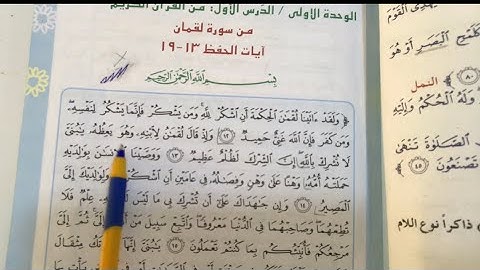 الوحدة الأولى / الدرس الأول: من القرآن الكريم
من سورة لقمان
آيات الحفظ ١٣-١٩
بِسْمِ اللَّهِ الرَّحْمَنِ الرَّحِيمِ
﴿ وَلَقَدْ ءَاتَيْنَا لُقْمَٰنَ الْحِكْمَةَ أَنِ اشْكُرْ لِلَّهِ وَمَن يَشْكُرْ فَإِنَّمَا يَشْكُرُ لِنَفْسِهِ
وَمَن كَفَرَ فَإِنَّ اللَّهَ غَنِيٌّ حَمِيدٌ ١٢ وَإِذْ قَالَ لُقْمَٰنُ لِابْنِهِ وَهُوَ يَعِظُهُ يَٰبُنَىَّ
لَا تُشْرِكْ بِاللَّهِ إِنَّ الشِّرْكَ لَظُلْمٌ عَظِيمٌ ١٣ وَوَصَّيْنَا بِوَٰلِدَيْهِ
حَمَلَتْهُ أُمُّهُ وَهْنًا عَلَىٰ وَهْنٍ وَفِصَٰلُهُ فِي عَامَيْنِ أَنِ اشْكُرْ وَلِوَٰلِدَيْكَ إِلَىَّ
الْمَصِيرُ ١٤ وَإِن جَٰهَدَاكَ عَلَىٰ أَن لَيْسَ لَكَ بِهِ عِلْمٌ فَلَا
تُطِعْهُمَا وَصَاحِبْهُمَا فِي الدُّنْيَا مَعْرُوفًا وَاتَّبِعْ سَبِيلَ مَنْ أَنَابَ إِلَىَّ ثُمَّ إِلَىَّ
مَرْجِعُكُمْ فَأُنَبِّئُكُم بِمَا كُنتُمْ تَعْمَلُونَ ١٥ يَٰبُنَىَّ إِنَّهَا تَكُ مِثْقَالَ
الْقَوْمِ
كَلَمْحِ الْبَصَرِ أَوْ هُوَ
النمل
وَلَهُ الْحُكْمُ وَإِلَيْهِ
الصَّلَاةَ تَنْهَىٰ
تَصْنَعُونَ ٤٥
ذاكراً نوع اللام